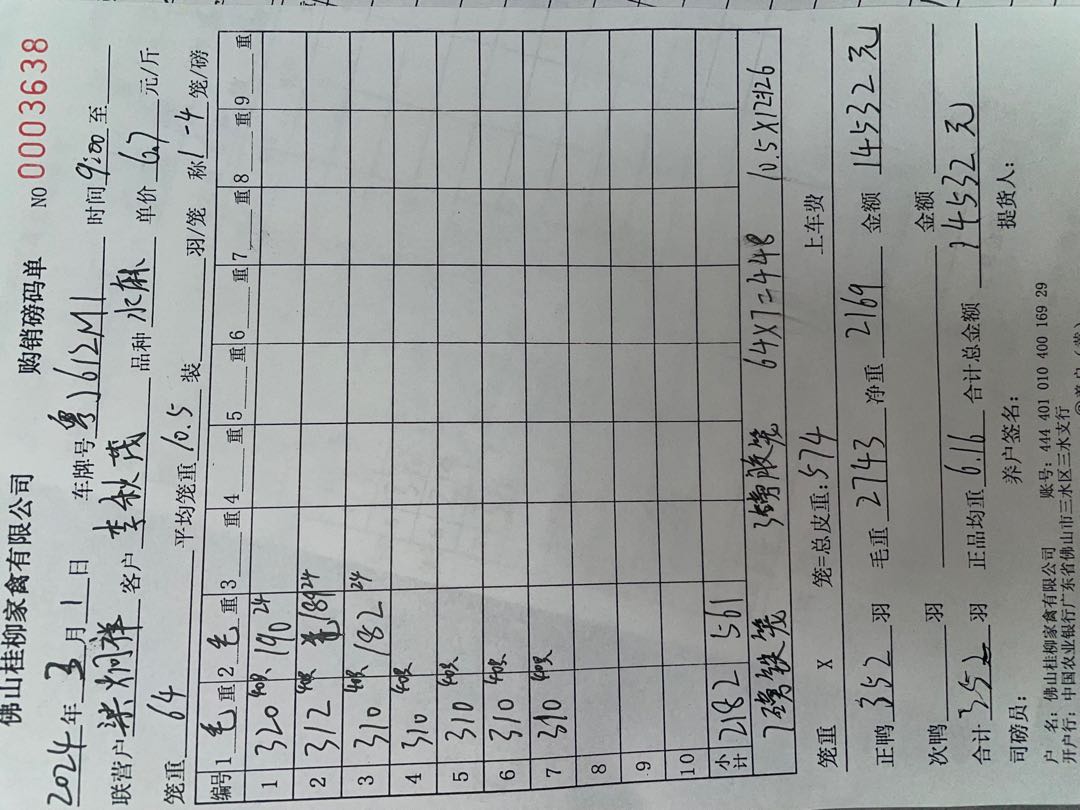 佛山桂柳家禽有限公司 购销磅码单 NO 0003638
2024年3月1日 车牌号粤J612M1 时间9:00至
联营户 客户李秋茂 品种水麻 单价6.7元/斤
笼重64 平均笼重10.5 装 羽/笼 称1-4笼/磅
编号 1毛重 2毛重 3 重 4 重 5 重 6 重 7 重 8 重 9 重
1 320 40只 190 24
2 312 40只 189 24
3 310 40只 182 24
4 310 40只
5 310 40只
6 310 40只
7 310 40只
8
9
10
小计 2182 561
7磅铁笼 3磅胶笼 64X7=448 10.5X12=126
笼重 X 笼=总皮重:574 上车费
正鸭352羽 毛重2743 净重2169 金额14532元
次鸭 羽 金额
合计352羽 正品均重6.16 合计总金额14532元
司磅员: 养户签名: 提货人:
户 名:佛山桂柳家禽有限公司 账号:444 401 010 400 169 29
开户行:中国农业银行广东省佛山市三水区三水支行